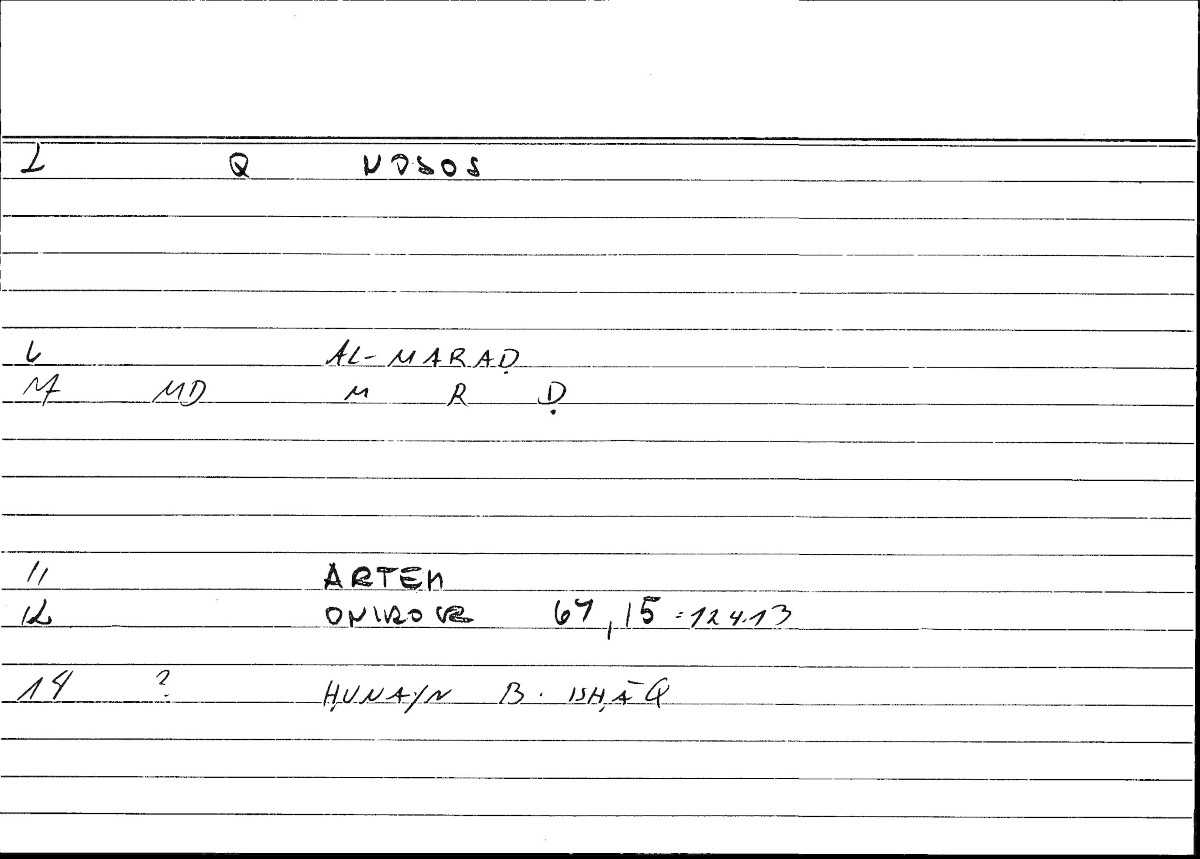 1 Q NOSOS
6 AL-MARAḌ
7 MD M R Ḍ
11 ARTEM
12 ONIROCR 67,15 = 124.13
14 ? ḤUNAYN B. ISḤĀQ